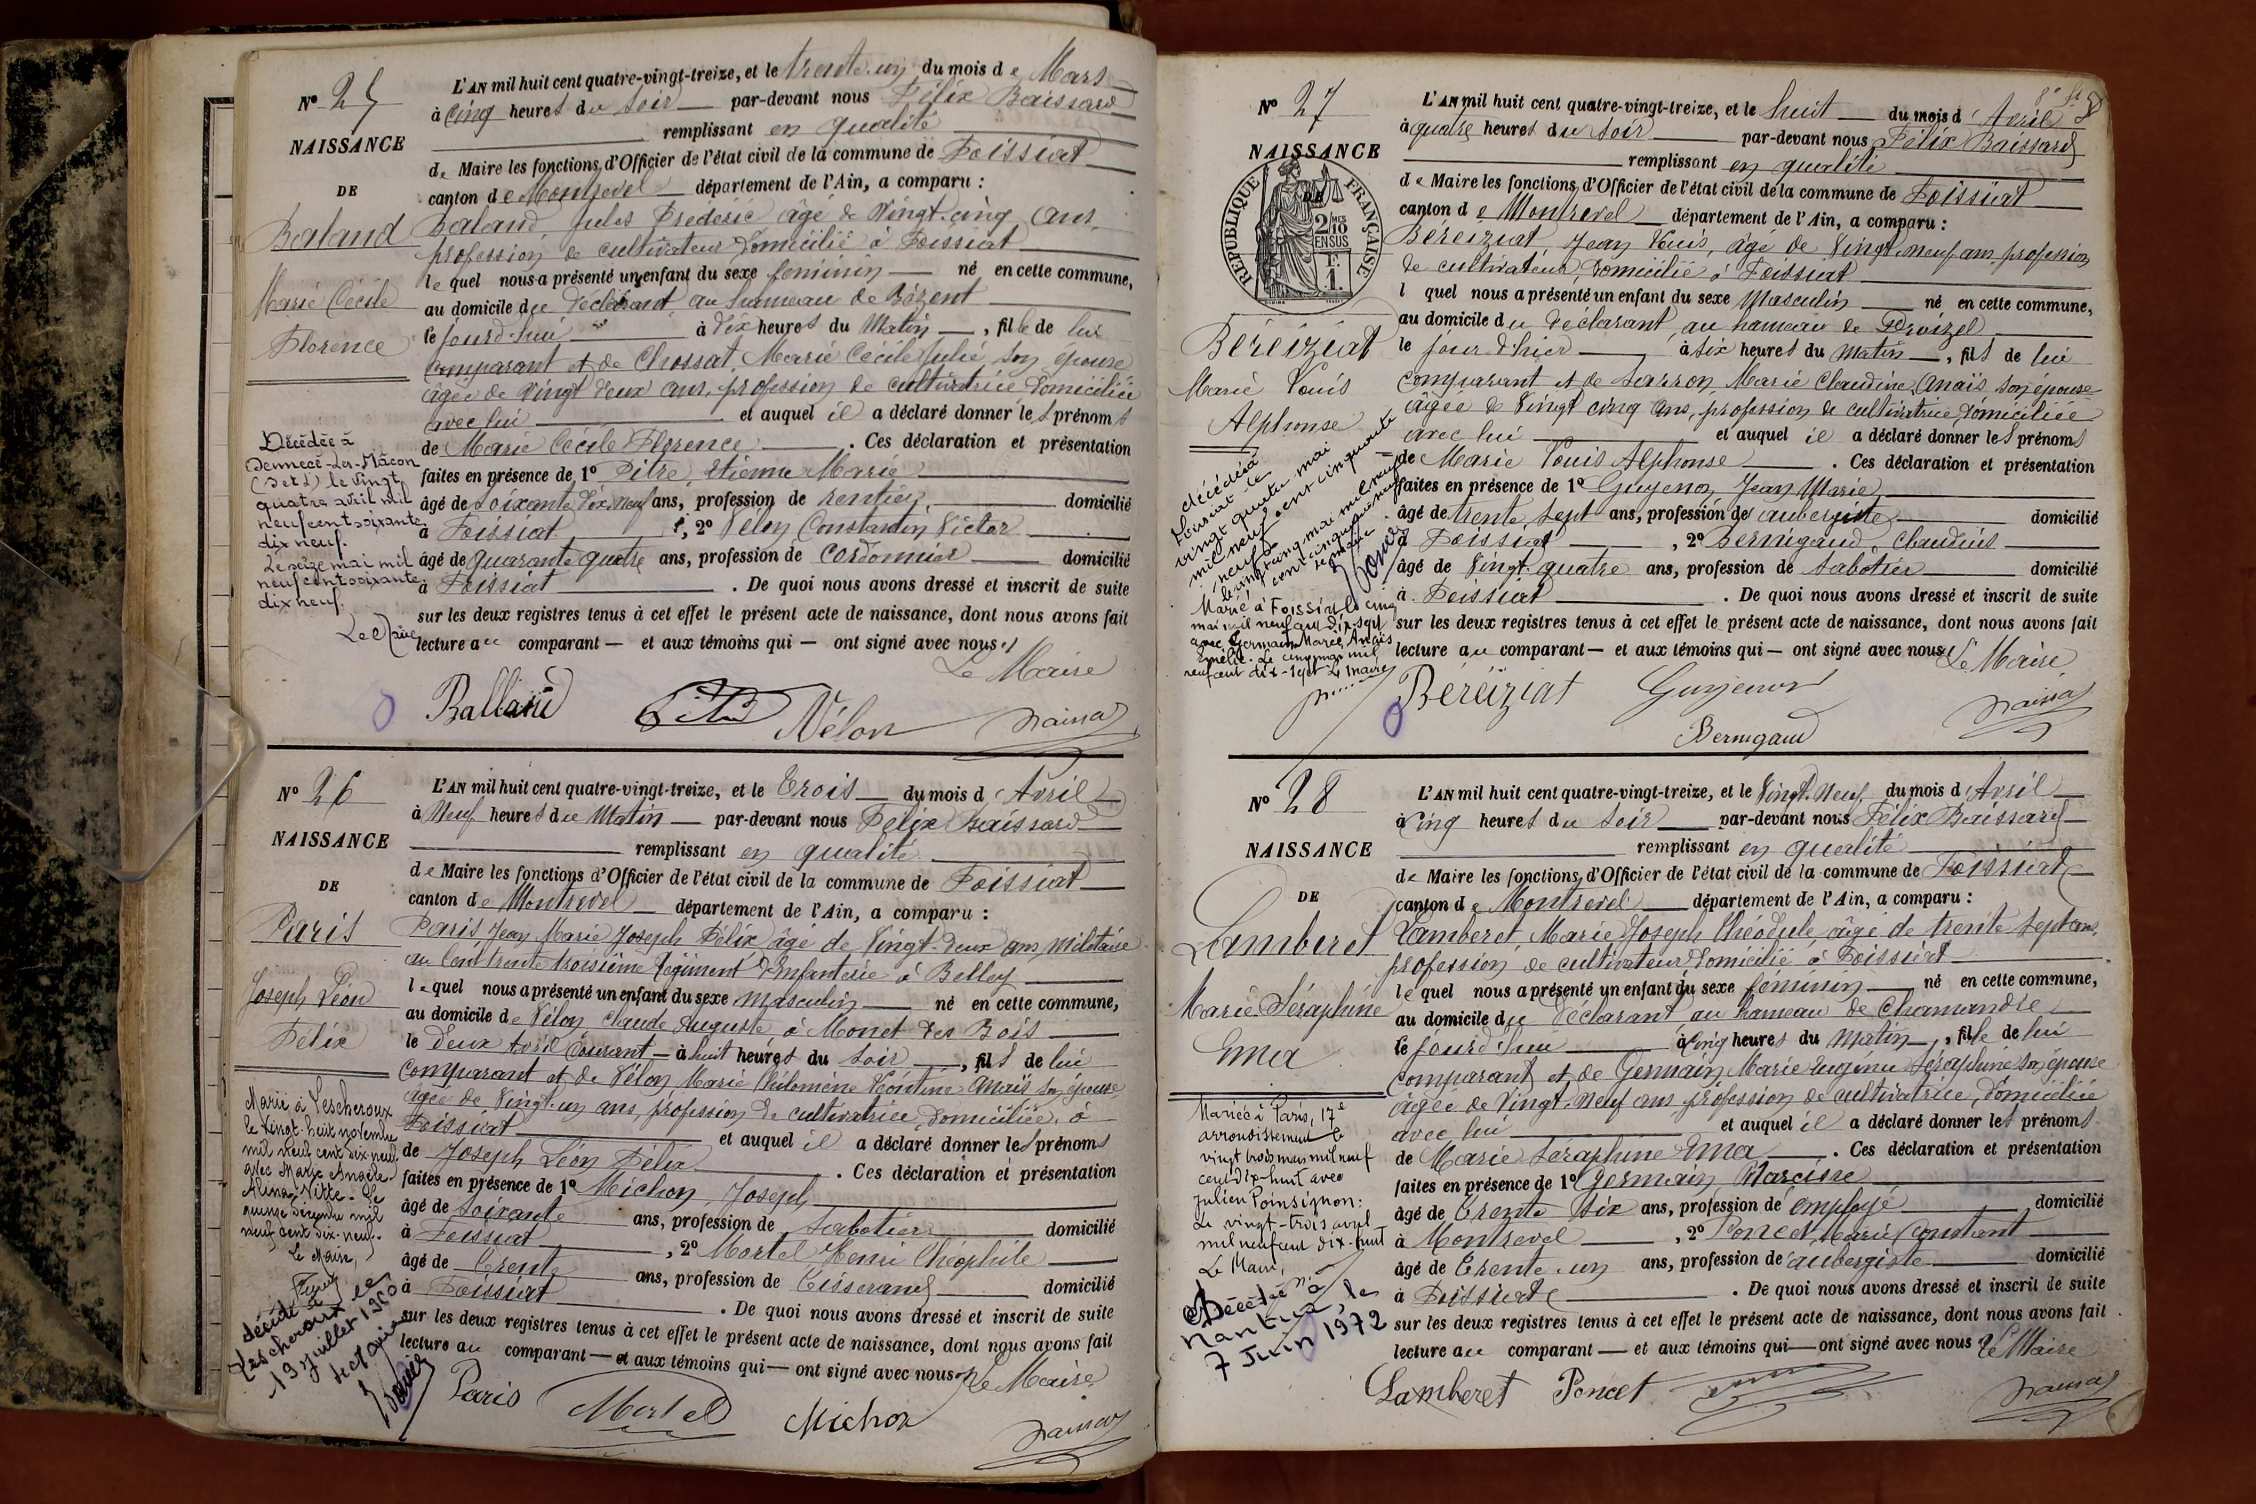 N° 25
NAISSANCE
DE
Baland
Marie Cécile
Florence
Décédée à
Sennecé-Les-Mâcon
(S et L) le vingt
quatre avril mil
neuf cent soixante
dix neuf.
Le seize mai mil
neuf cent soixante
dix neuf.
Le Maire
L'AN mil huit cent quatre-vingt-treize, et le trente-un du mois de Mars
à Cinq heures du soir par-devant nous Félix Baissard
remplissant en qualité
de Maire les fonctions d'Officier de l'état civil de la commune de Foissiat
canton de Montrevel département de l'Ain, a comparu :
Baland, Jules Frédéric âgé de Vingt-cinq ans,
profession de cultivateur domicilié à Foissiat
le quel nous a présenté un enfant du sexe féminin né en cette commune,
au domicile du déclarant au hameau de Bézent
le jourd'hui à dix heures du Matin, fille de lui
comparant et de Chossat, Marie Cécile Julie son épouse
âgée de Vingt deux ans, profession de cultivatrice domiciliée
avec lui et auquel il a déclaré donner les prénoms
de Marie Cécile Florence. Ces déclaration et présentation
faites en présence de 1° Pitre, Etienne Marie
âgé de soixante dix neuf ans, profession de rentier, domicilié
à Foissiat, 2° Vélon Constantin Victor
âgé de quarante quatre ans, profession de Cordonnier domicilié
à Foissiat. De quoi nous avons dressé et inscrit de suite
sur les deux registres tenus à cet effet le présent acte de naissance, dont nous avons fait
lecture au comparant — et aux témoins qui — ont signé avec nous
Le Maire
Balland Pitre Vélon
N° 26
NAISSANCE
DE
Paris
Joseph Léon
Félix
Marié à Lescheroux
le vingt-huit novembre
mil neuf cent dix-neuf
avec Marie Angèle
Alina Vitte. Le
quinze décembre mil
neuf cent dix-neuf.
Le Maire,
décédé à
Lescheroux le
19 juillet 1960
L'AN mil huit cent quatre-vingt-treize, et le Trois du mois d'Avril
à Neuf heures du Matin par-devant nous Félix Baissard
remplissant en qualité
de Maire les fonctions d'Officier de l'état civil de la commune de Foissiat
canton de Montrevel département de l'Ain, a comparu :
Paris Jean Marie Joseph Félix âgé de Vingt-Deux ans Militaire
au Cent trente troisième régiment d'Infanterie à Belley
le quel nous a présenté un enfant du sexe masculin né en cette commune,
au domicile de Vélon, Claude Auguste, à Monet des Bois
le Deux Avril Courant à huit heures du soir, fils de lui
comparant et de Vélon Marie Philomène Léontine Anaïs son épouse
âgée de Vingt-un ans, profession de cultivatrice, domiciliée à
Foissiat et auquel il a déclaré donner les prénoms
de Joseph Léon Félix. Ces déclaration et présentation
faites en présence de 1° Michon, Joseph
âgé de soixante ans, profession de Sabotier domicilié
à Foissiat, 2° Mortel Henri Théophile
âgé de Trente ans, profession de Tisserand domicilié
à Foissiat. De quoi nous avons dressé et inscrit de suite
sur les deux registres tenus à cet effet le présent acte de naissance, dont nous avons fait
lecture au comparant — et aux témoins qui — ont signé avec nous
Le Maire
Paris Mortel Michon
N° 27
NAISSANCE
DE
RÉPUBLIQUE FRANÇAISE
2/10 EN SUS
Béréiziat
Marie Louis
Alphonse
décédé à
Foissiat le
vingt quatre mai
mil neuf cent cinquante
neuf
le vingt cinq mai mil neuf
cent cinquante neuf
Marié à Foissiat le cinq
mai mil neuf cent dix-sept
avec Germain Marie Anaïs
Emélie. Le cinq mai mil
neuf cent dix-sept Le Maire
L'AN mil huit cent quatre-vingt-treize, et le huit du mois d'Avril
à quatre heures du soir par-devant nous Félix Baissard
remplissant en qualité
de Maire les fonctions d'Officier de l'état civil de la commune de Foissiat
canton de Montrevel département de l'Ain, a comparu :
Béréiziat, Jean Louis, âgé de Vingt-neuf ans profession
de cultivateur domicilié à Foissiat
l quel nous a présenté un enfant du sexe Masculin né en cette commune,
au domicile du déclarant au hameau de
le jour d'hier à six heures du Matin, fils de lui
comparant et de Sarron Marie Claudine Anaïs son épouse
âgée de Vingt cinq ans, profession de cultivatrice, domiciliée
avec lui et auquel il a déclaré donner les prénoms
de Marie Louis Alphonse. Ces déclaration et présentation
faites en présence de 1° Guyenon, Jean Marie
âgé de trente sept ans, profession de aubergiste domicilié
à Foissiat, 2° Bernigaud, Claudius
âgé de Vingt-quatre ans, profession de Sabotier domicilié
à Foissiat. De quoi nous avons dressé et inscrit de suite
sur les deux registres tenus à cet effet le présent acte de naissance, dont nous avons fait
lecture au comparant — et aux témoins qui — ont signé avec nous
Le Maire
Béréiziat Guyenon
Bernigaud
N° 28
NAISSANCE
DE
Lamberet
Marie Séraphine
Ema
Mariée à Paris, 17e
arrondissement le
vingt trois mars mil neuf
cent dix-huit avec
Julien Poinsignon.
Le vingt-trois avril
mil neuf cent dix-huit
Le Maire,
Décédée à
Nantua, le
7 Juin 1972
L'AN mil huit cent quatre-vingt-treize, et le Vingt-Neuf du mois d'Avril
à Cinq heures du soir par-devant nous Félix Baissard
remplissant en qualité
de Maire les fonctions d'Officier de l'état civil de la commune de Foissiat
canton de Montrevel département de l'Ain, a comparu :
Lamberet Marie Joseph Théodule âgé de trente sept ans,
profession de cultivateur domicilié à Foissiat
le quel nous a présenté un enfant du sexe féminin né en cette commune,
au domicile du déclarant au hameau de Chamandre
le jourd'hui à Cinq heures du Matin, fille de lui
comparant et de Germain Marie Eugénie Séraphine son épouse
âgée de Vingt-Neuf ans profession de cultivatrice, domiciliée
avec lui et auquel il a déclaré donner les prénoms
de Marie Séraphine Ema. Ces déclaration et présentation
faites en présence de 1° Germain Narcisse
âgé de Trente Six ans, profession de employé domicilié
à Montrevel, 2° Poncet, Marie Constant
âgé de Trente-un ans, profession de aubergiste domicilié
à Foissiat. De quoi nous avons dressé et inscrit de suite
sur les deux registres tenus à cet effet le présent acte de naissance, dont nous avons fait
lecture au comparant — et aux témoins qui — ont signé avec nous
Le Maire
Lamberet Poncet